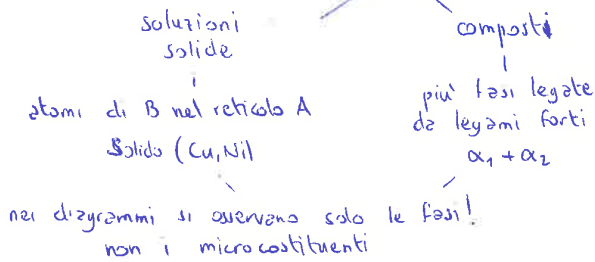 soluzioni
solide
composti
atomi di B nel reticolo A
Solido (Cu, Ni)
più fasi legate
da legami forti
α₁ + α₂
nei diagrammi si osservano solo le fasi!
non i microcostituenti